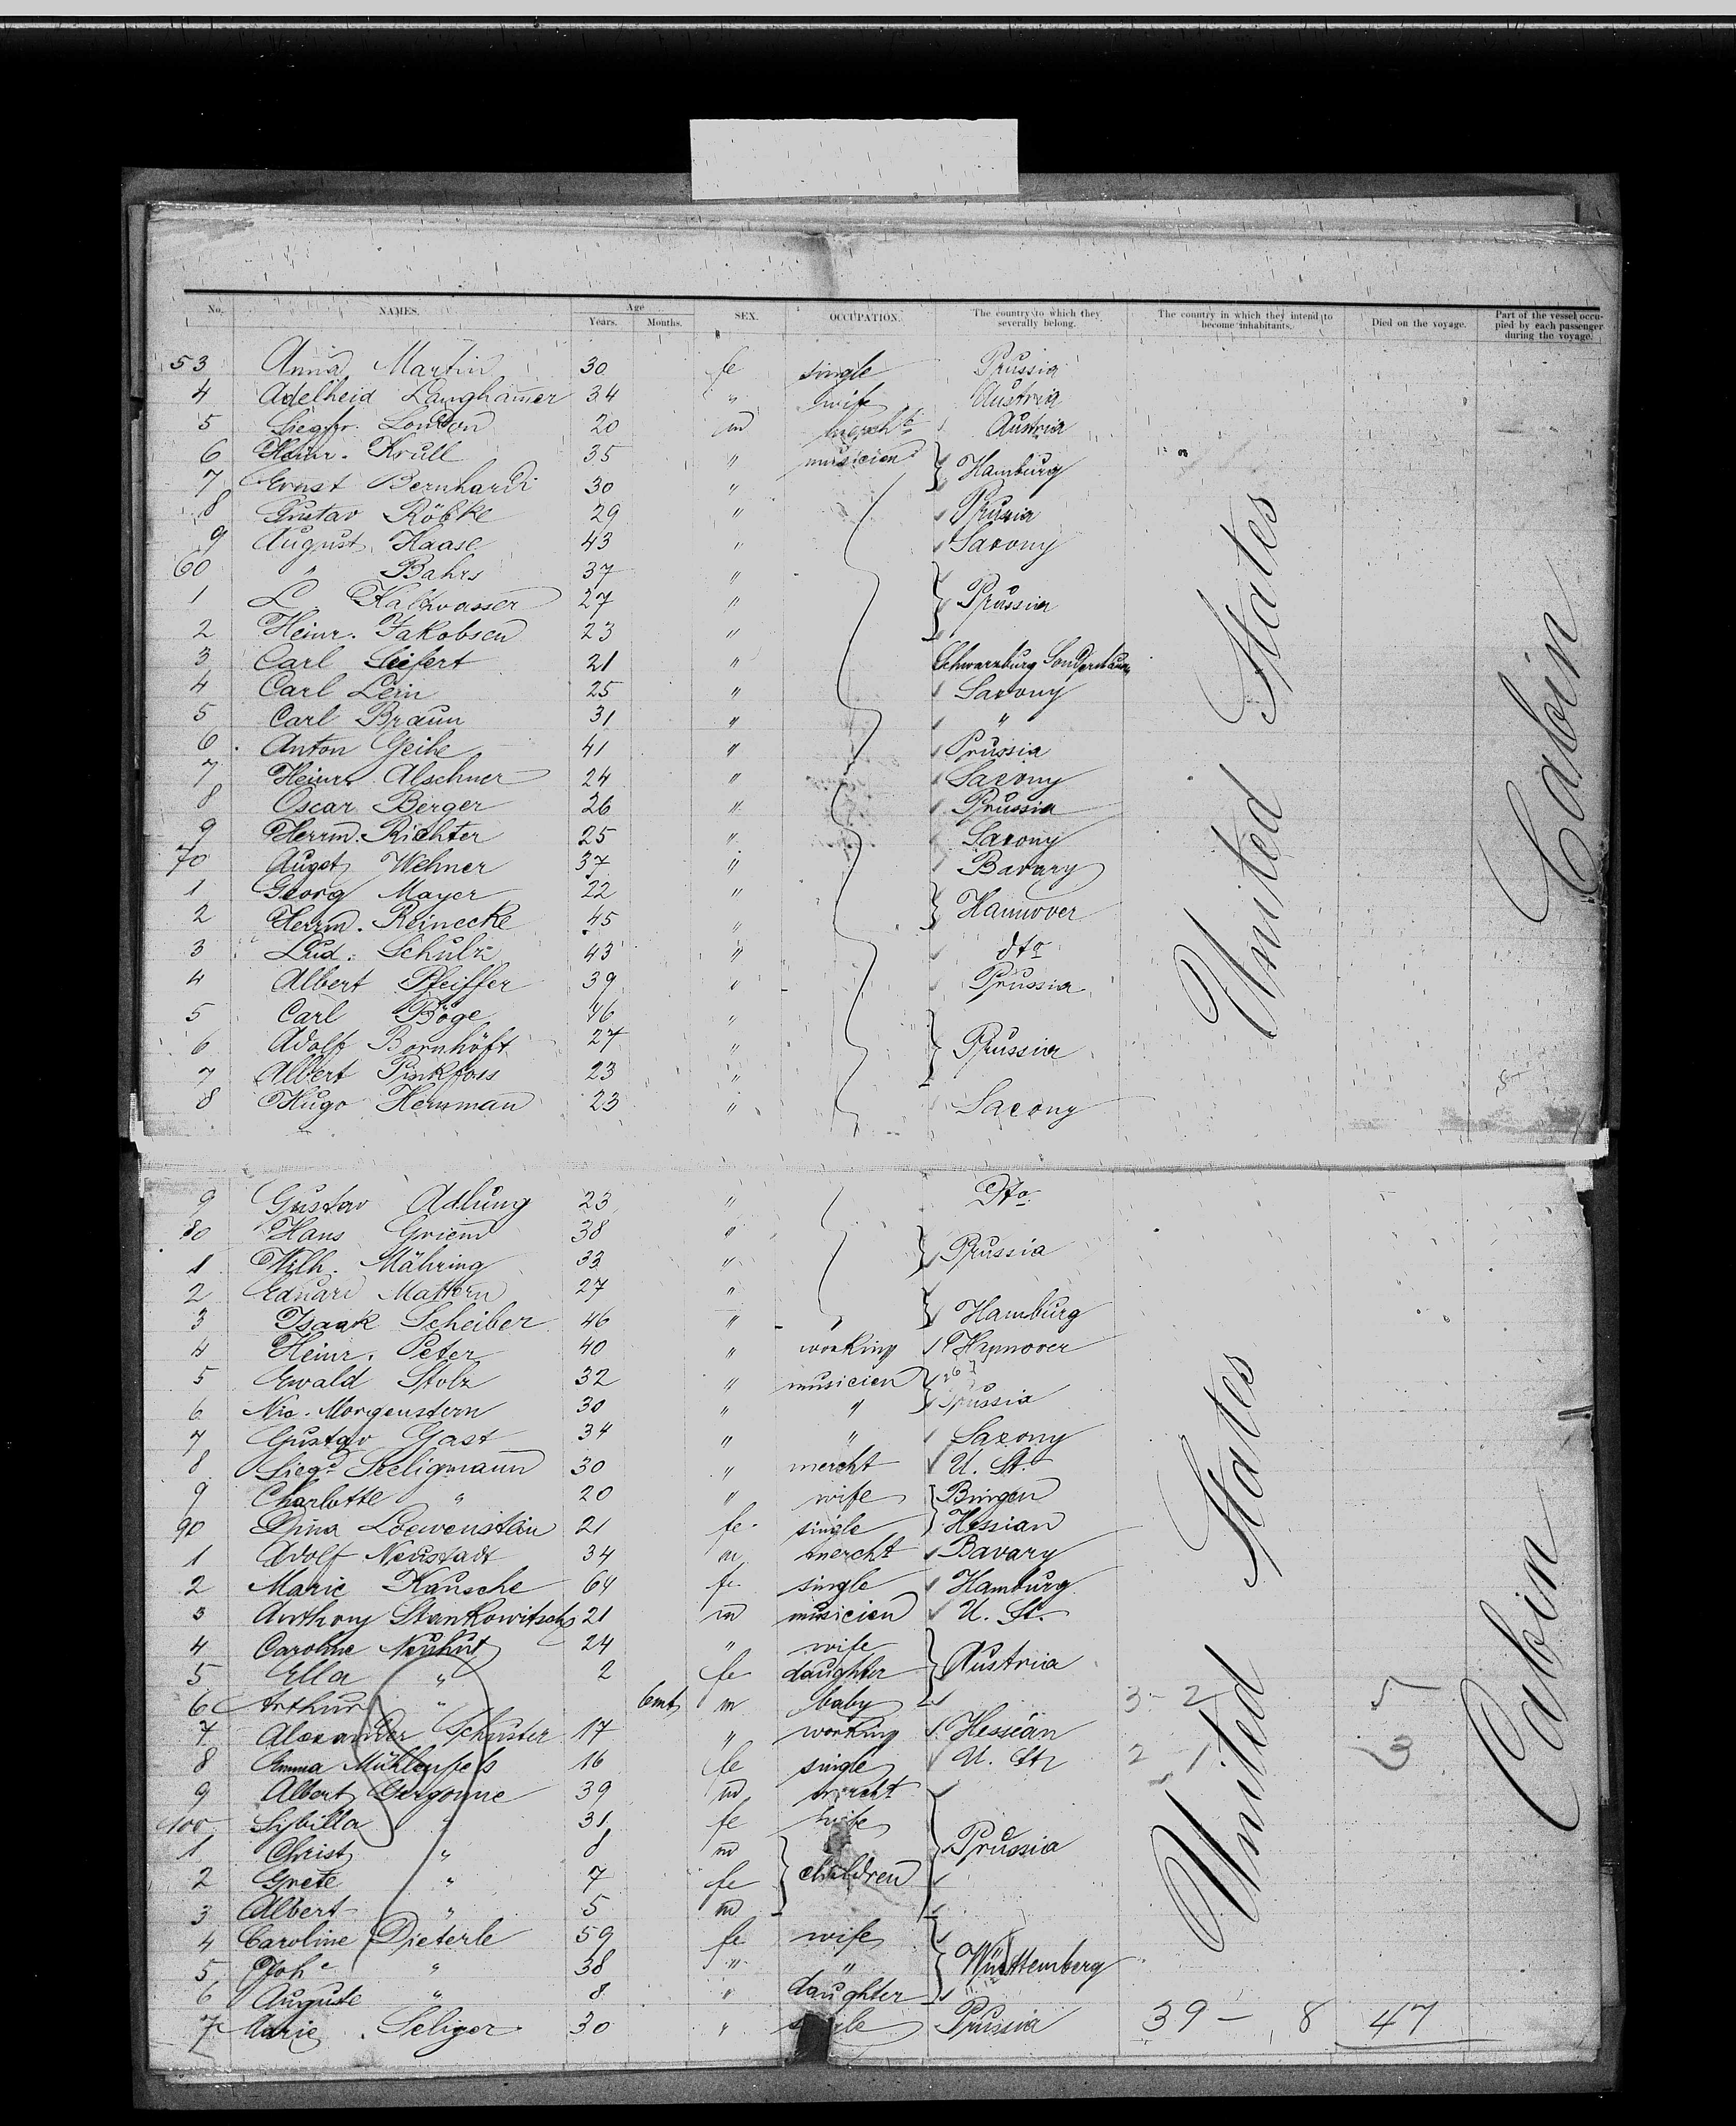 No. NAMES. Age Years. Months. SEX. OCCUPATION. The country to which they severally belong. The country in which they intend to become inhabitants. Died on the voyage. Part of the vessel occupied by each passenger during the voyage.
53 Anna Martin 30 fe single Prussia
4 Adelheid Langham̅er 34 " wife Austria
5 Siegfr. London 20 m Austria
6 Heinr. Krull 35 " musicien Hamburg
7 Ernst Bernhardi 30 "
8 Gustav Röbke 29 " Prussia
9 August Haase 43 " Saxony
60 " Bahrs 37 "
1 L Kaltwasser 27 " Prussia
2 Heinr. Jakobsen 23 "
3 Carl Siefert 21 " Schwarzburg
4 Carl Lein 25 " Saxony
5 Carl Braun 31 " "
6 Anton Geihe 41 " Prussia
7 Heinr. Alschner 24 " Saxony
8 Oscar Berger 26 " Prussia
9 Herrm. Richter 25 " Saxony
70 Augst Wehner 37 " Bavary
1 Georg Mayer 22 " Hannover
2 Herrm. Reinecke 45 "
3 Lud. Schulz 43 " dto
4 Albert Pfeiffer 39 " Prussia
5 Carl Böge 46 "
6 Adolf Bornhöft 27 " Prussia
7 Albert Pinkfoss 23 "
8 Hugo Herrman 23 " Saxony
United States
Cabin
9 Gustav Adlung 23 " Dto
80 Hans Griem 38 "
1 Wilh. Mähring 33 " Prussia
2 Eduard Mattern 27 "
3 Isaak Scheiber 46 " Hamburg
4 Heinr. Peter 40 " working Hannover
5 Ewald Stolz 32 " musicien
6 Nic. Morgenstern 30 " " Prussia
7 Gustav Gast 34 " " Saxony
8 Siegd Seeligmann 30 " mercht U. St.
9 Charlotte " 20 " wife Bingen
90 Dina Loewenstein 21 fe. single Hessian
1 Adolf Neustadt 34 m mercht Bavary
2 Marie Kausche 64 fe. single Hamburg
3 Anthony Stankowitsch 21 m musicien U. St.
4 Caroline Neuhut 24 " wife Austria
5 Ella " 2 fe daughter
6 Arthur " 6mt m baby 3 - 2 5
7 Alexander Schuster 17 " working Hessian
8 Emma Mühlenfels 16 fe single U. St 2 - 1 3
9 Albert Gergonne 39 m mercht
100 Sybilla " 31 fe wife
1 Christ " 8 m Prussia
2 Grete " 7 fe children
3 Albert " 5 m
4 Caroline Dieterle 59 fe wife
5 Johe " 38 " " Württemberg
6 Auguste " 8 " daughter
7 Seliger 30 " Prussia 39 - 8 47
United States
Cabin